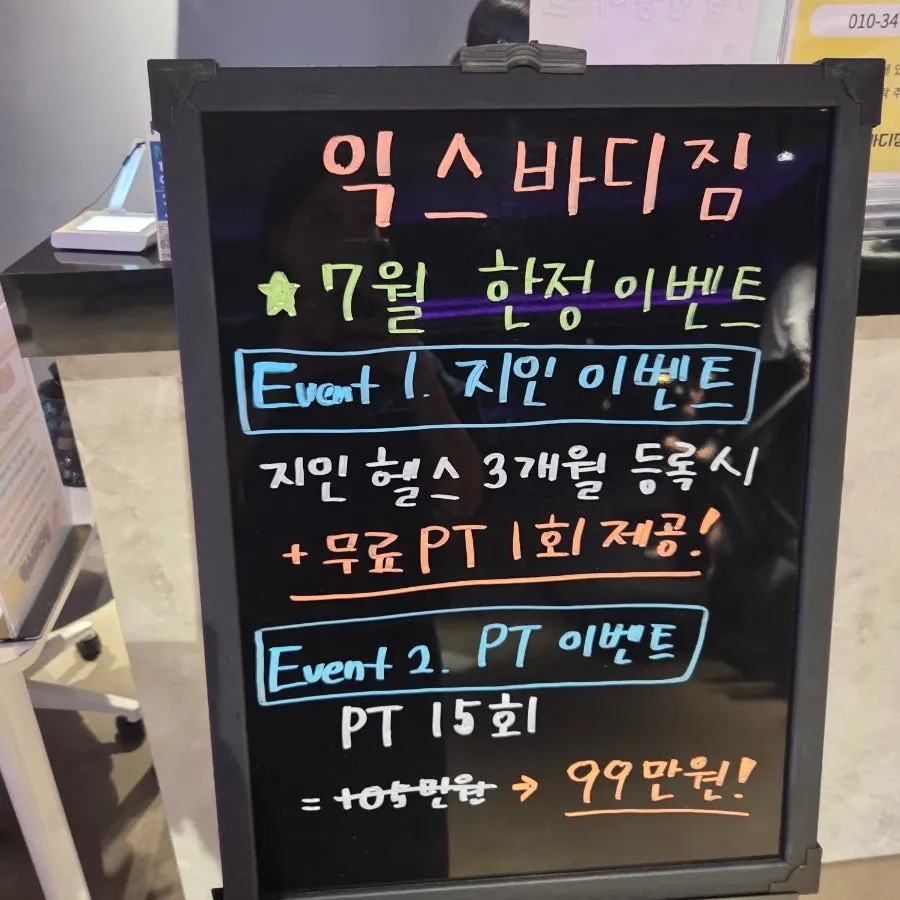 010-34
익스바디짐
★7월 한정 이벤트
Event 1. 지인 이벤트
지인 헬스 3개월 등록 시
+ 무료 PT 1회 제공!
Event 2. PT 이벤트
PT 15회
= 105만원 → 99만원!